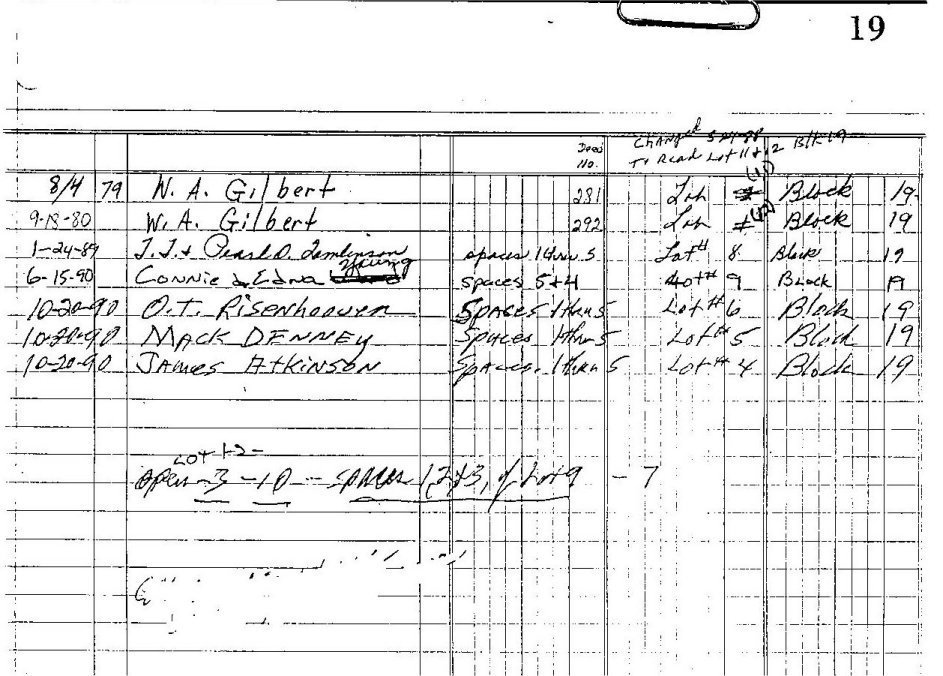 19
Deed Changed 5-21-88
No. To Read Lot 11 & 12 Blk 19
(11)
8/4 79 W. A. Gilbert 281 Lot Block 19
(12)
9-18-80 W. A. Gilbert 292 Lot Block 19
1-24-89 J. J. & Pearl D. Tomlinson spaces 1 thru 5 Lot # 8 Block 19
Young
6-15-90 Connie & Edna spaces 5+4 Lot # 9 Block 19
10-20-90 O.T. Risenhoover Spaces 1 thru 5 Lot # 6 Block 19
10-20-90 Mack Denney Spaces 1 thru 5 Lot # 5 Block 19
10-20-90 James Atkinson Spaces. 1 thru 5 Lot # 4 Block 19
Lot 1-2-
open -3 -10 - spaces 1,2+3, of Lot 9 - 7